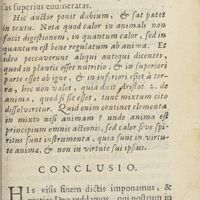 as superius enumeratas.
Hic auctor ponit dubium, & sat patet
in textu. Nota quod calor in animali non
facit digestionem, in quantum calor, sed in
quantum est bene regulatum ab anima. Et
ideo peccaverunt aliqui antiqui dicentes,
quod in plantis esset nutritio, & in superiori
parte esset ab igne, & in inferiori esset à ter-
ra, hoc non valet, quia dicit Aristot. 2. de
anima, quod si sic esset, tunc mixtum cito
dissolveretur. Quid enim continet elementa
in mixto nisi anima? unde anima est
principium omnis actionis, sed calor sive spi-
ritus sunt instrumenta, quia sunt in virtu-
te animæ, & non in virtute sui ipsius.
CONCLUSIO.
HIs visis finem dictis imponamus, &
gratias Deo reddamus, qui nostrum in